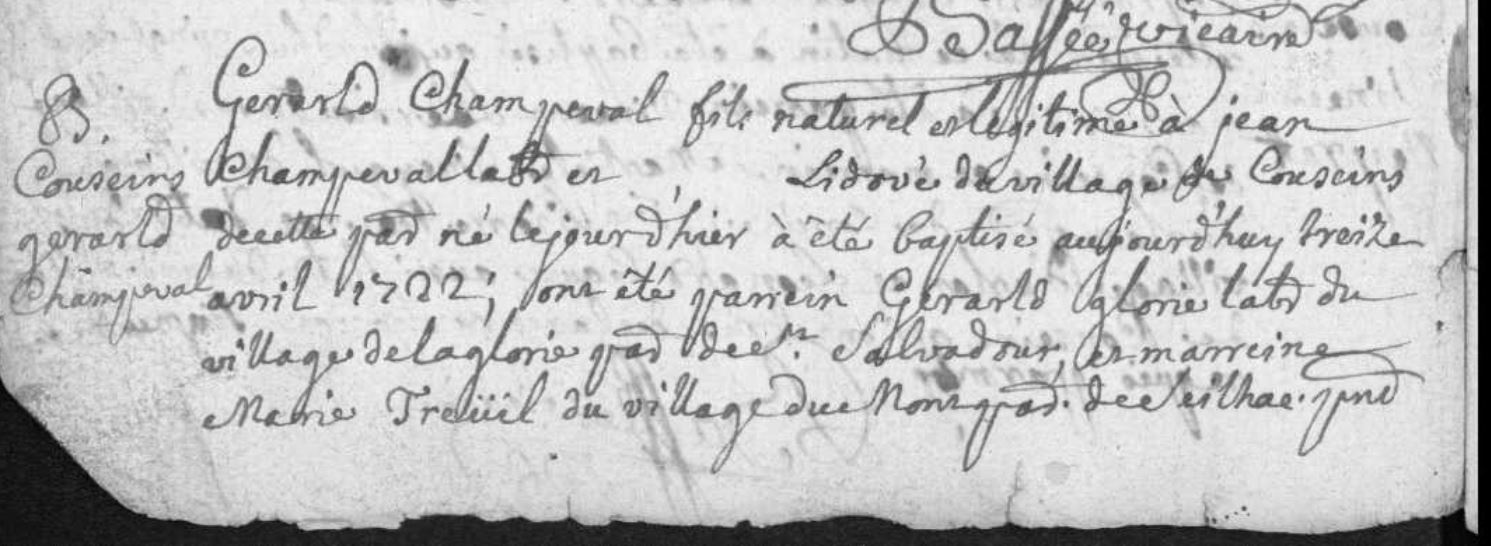 DSassée vicaire
B.
Couseins
gerarld
Champeval
Gerarld Champeval fils naturel et legitime à jean
Champeval labr et Lidove du village de Couseins
decette par né lejourd'hier à été baptisé aujourd'huy treize
avril 1722; ont été parrein Gerarld glorie labr du
village delaglorie par de St. Salvadour, et marreine
Marie Treüil du village du Mont par. de Seilhac. pnt